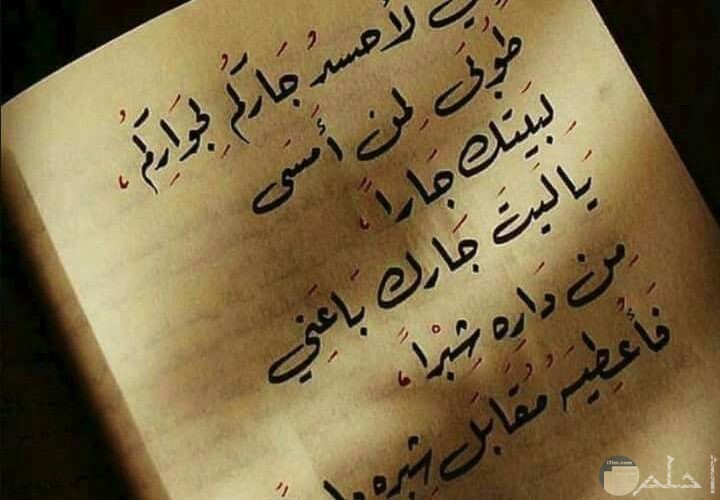 لأحسدُ جَاركُمِ لجِوَارِكُم،
طُوبَى لِمن أَمسَى
لِبَيتك جَاراً،
يَا لَيتَ جَارك بَاعَنِي
مِن دَارِهِ شِبْراً،
فَأُعطِيهِ مُقَابَل شِبرِهِ
iTim.com
أحلم